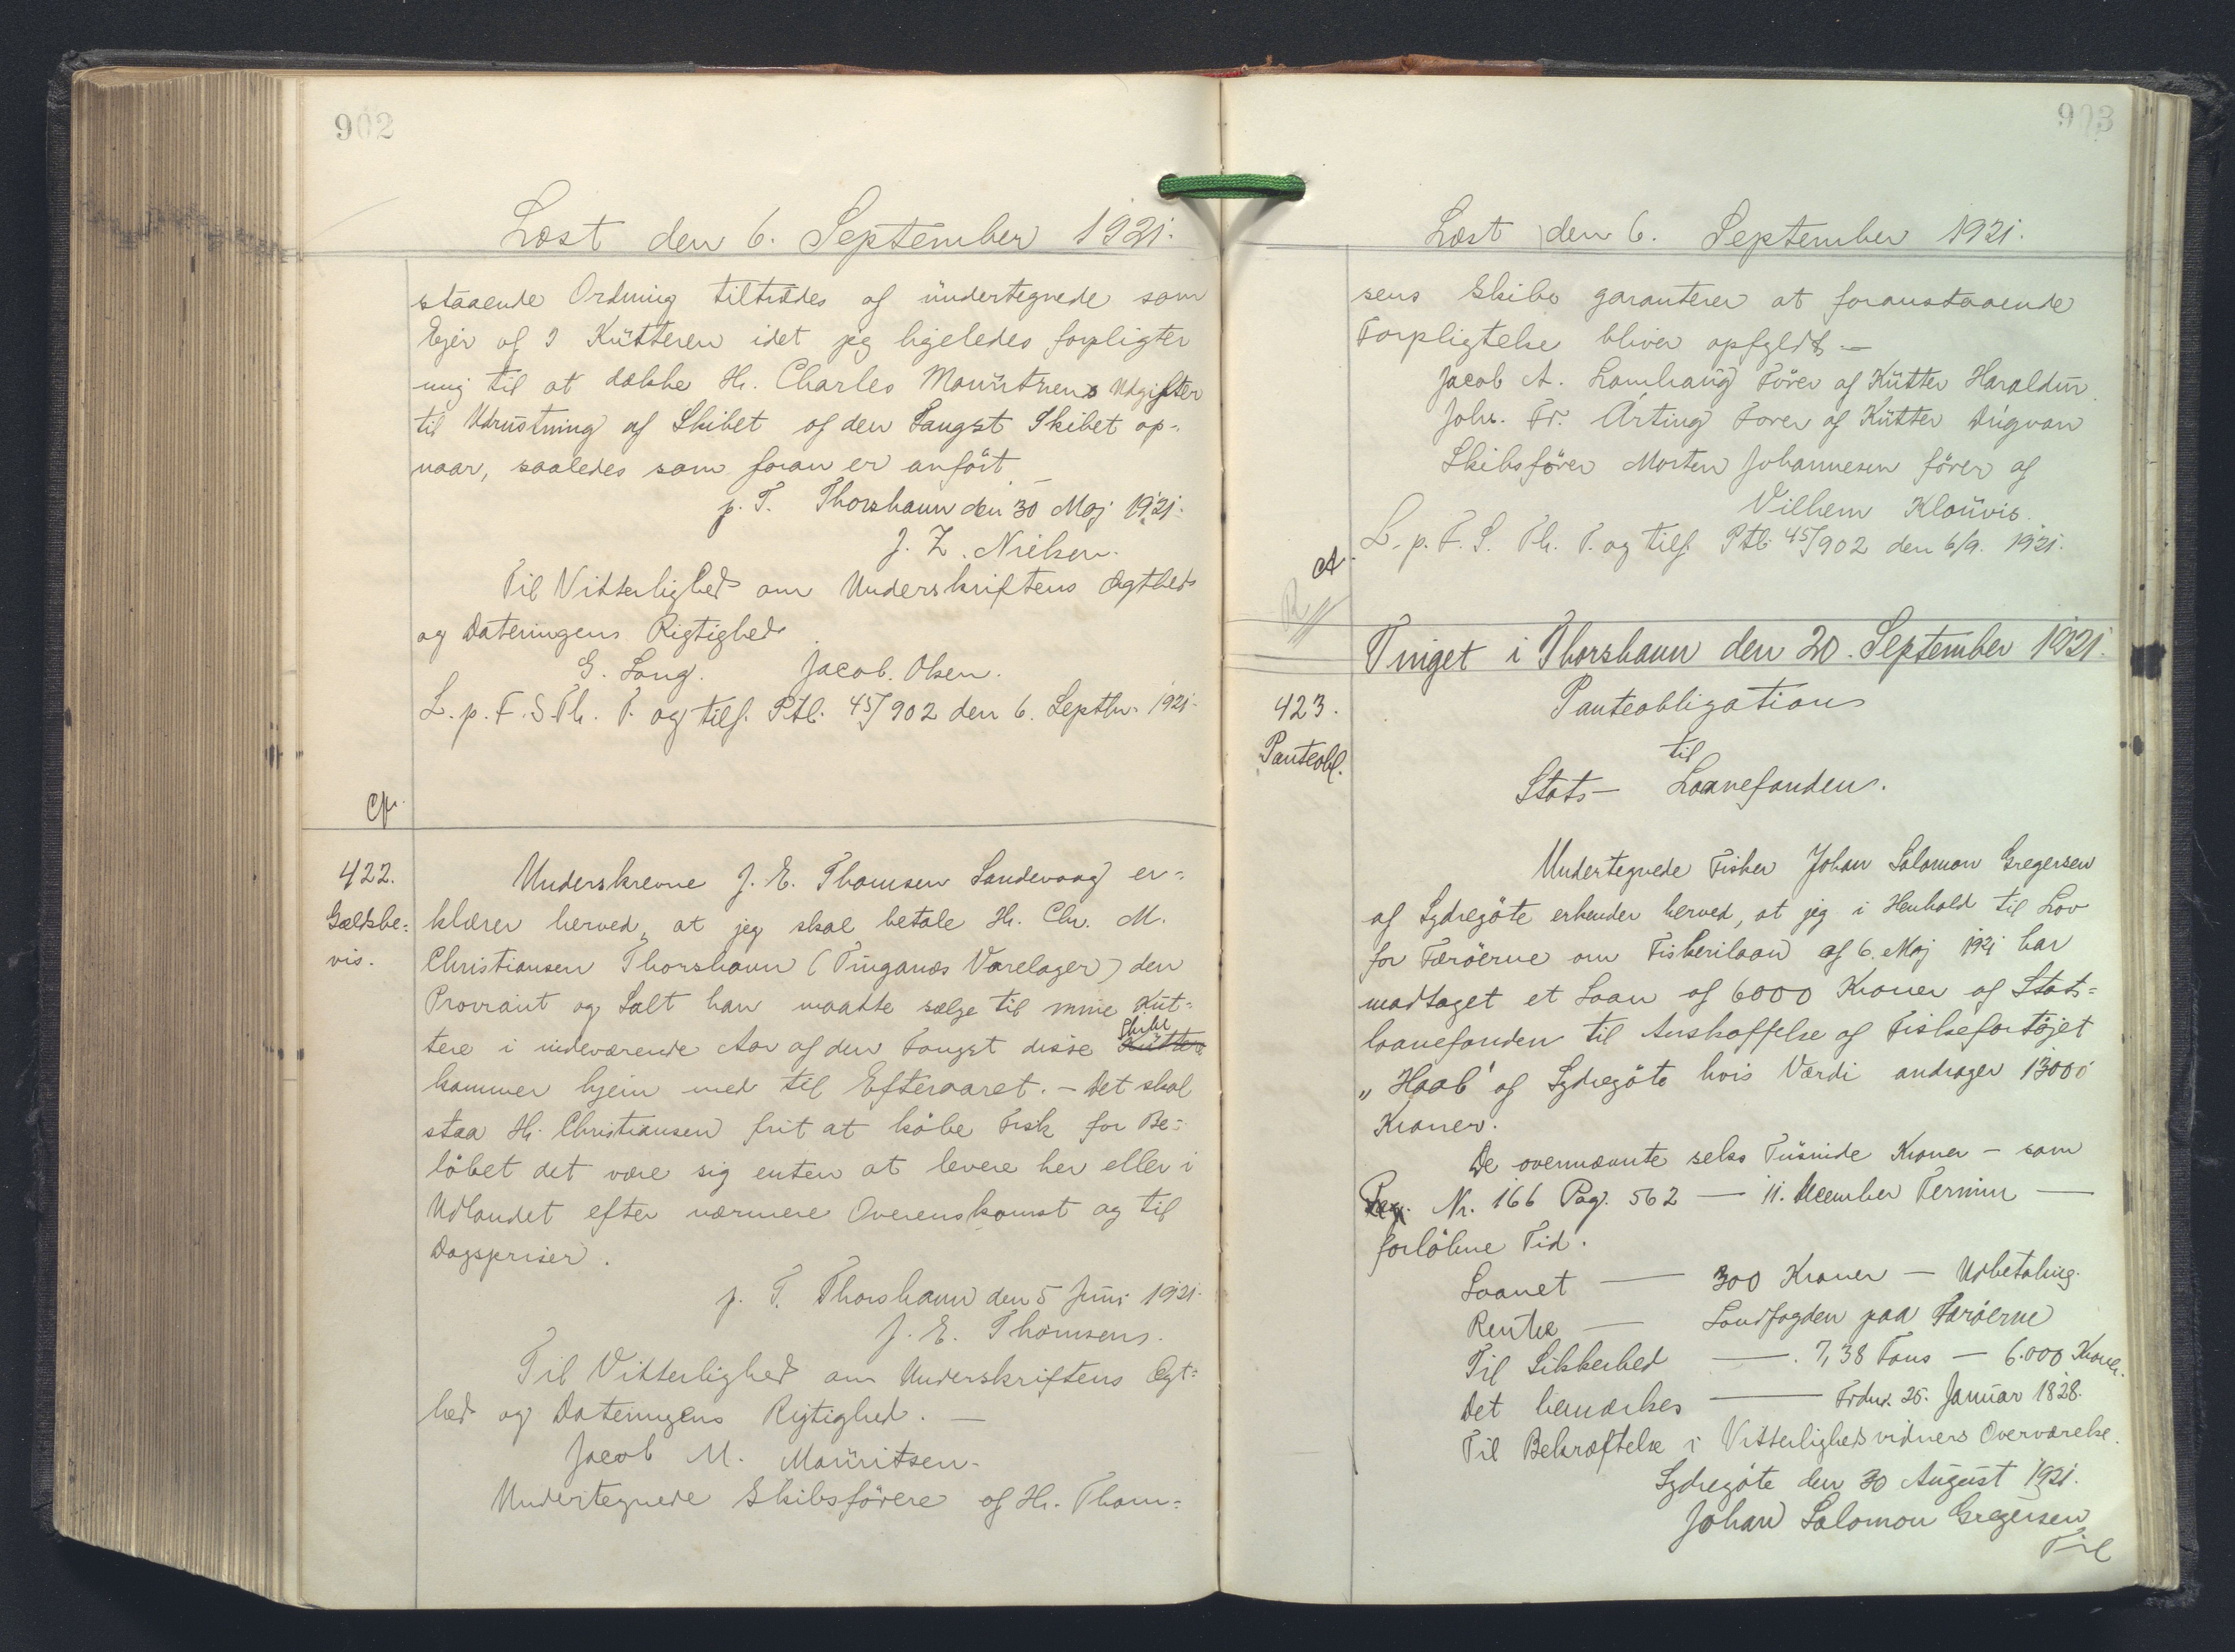 902
Læst den 6. September 1921.
staaende Ordning tiltrædes af undertegnede som
Ejer af Kütteren idet jeg ligeledes forpligter
mig til at dække Hr. Charles Mouritzens Udgifter
til Udrustning af Skibet af den Fangst Skibet op-
naar, saaledes som foran er anført.
p. T. Thorshavn den 30 Maj 1921.
J. Z. Nielsen.
Til Vitterlighed om Underskriftens Ægthed
og Dateringens Rigtighed.
G. Long. Jacob Olsen.
L. p. F. S. Th. T. og tilf. Ptb. 45/902 den 6. Septbr. 1921.
422.
Gældsbe-
vis.
Underskrevne J. E. Thomsen Sandevaag er-
klærer herved, at jeg skal betale Hr. Chr. M.
Christiansen Thorshavn (Tinganæs Varelager) den
Proviant og Salt han maatte sælge til mine Küt-
tere i indeværende Aar af den Fangst disse Skibe Küttere
kommer hjem med til Efteraaret. - Det skal
staa Hr. Christiansen frit at købe Fisk for Be-
løbet det være sig enten at levere her eller i
Udlandet efter nærmere Overenskomst og til
Dagspriser.
p. T. Thorshavn den 5 Juni 1921.
J. E. Thomsen.
Til Vitterlighed om Underskriftens Ægt-
hed og Dateringens Rigtighed. —
Jacob M. Mouritsen.
Undertegnede Skibsførere af Hr. Thom-
903
Læst den 6. September 1921.
sens Skibe garanterer at foranstaaende
Forpligtelse bliver opfyldt —
Jacob A. Lamhaug Fører af Kütter Haraldur.
Johs. Fr. Arting Fører af Kütter Dugvan
Skibsfører Morten Johannesen fører af
Vilhem Klouvis.
L. p. F. S. Th. T. og tilf. Ptb. 45/902 den 6/9. 1921.
Tinget i Thorshavn den 20. September 1921.
423.
Panteobl.
Panteobligation
til
Stats- Laanefonden.
Undertegnede Fisker Johan Salomon Gregersen
af Sydregöte erkender herved, at jeg i Henhold til Lov
for Færøerne om Fiskerilaan af 6. Maj 1921 har
modtaget et Laan af 6000 Kroner af Stats-
laanefonden til Anskaffelse af Fiskefartøjet
"Haab" af Sydregöte hvis Værdi andrager 13000
Kroner.
De ovennævnte seks Tusinde Kroner - som
Reg. Nr. 166 Pag. 562 — 11. December Termin —
forløbne Tid.
Laanet — 300 Kroner — Udbetaling.
Rentes — Landfogden paa Færøerne
Til Sikkerhed — 7,38 Tons — 6.000 Kroner.
Det bemærkes — Frdn. 25. Januar 1828.
Til Bekræftelse i Vitterlighedsvidners Overværelse.
Sydregöte den 30 August 1921.
Johan Salomon Gregersen
Til